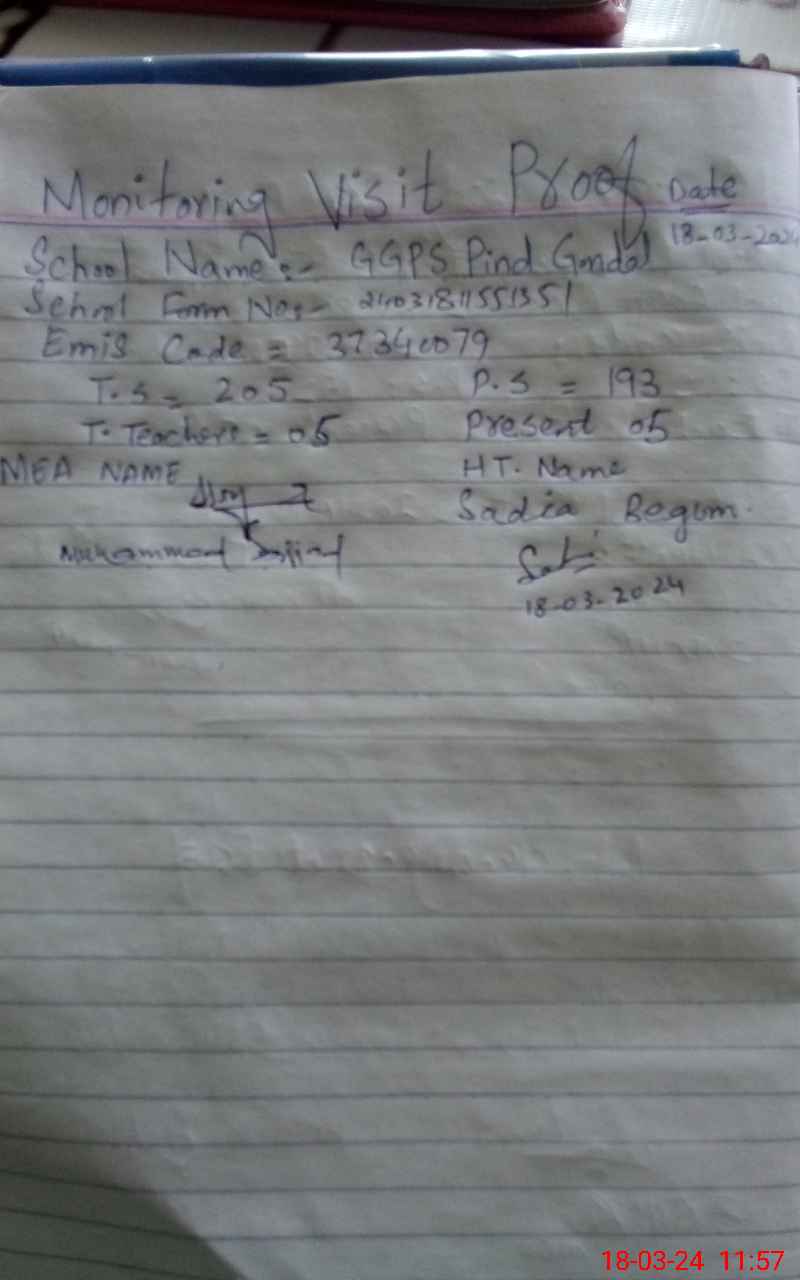 Monitoring Visit Proof Date
18-03-2024
School Name:- GGPS Pind Gondal
School Form No:- 24031811551351
Emis Code = 37340079
T.S = 205 P.S = 193
T. Teachers = 05 Present 05
MEA NAME HT. Name
Sadia Begum.
Muhammad Sajjad
18-03-2024
18-03-24 11:57